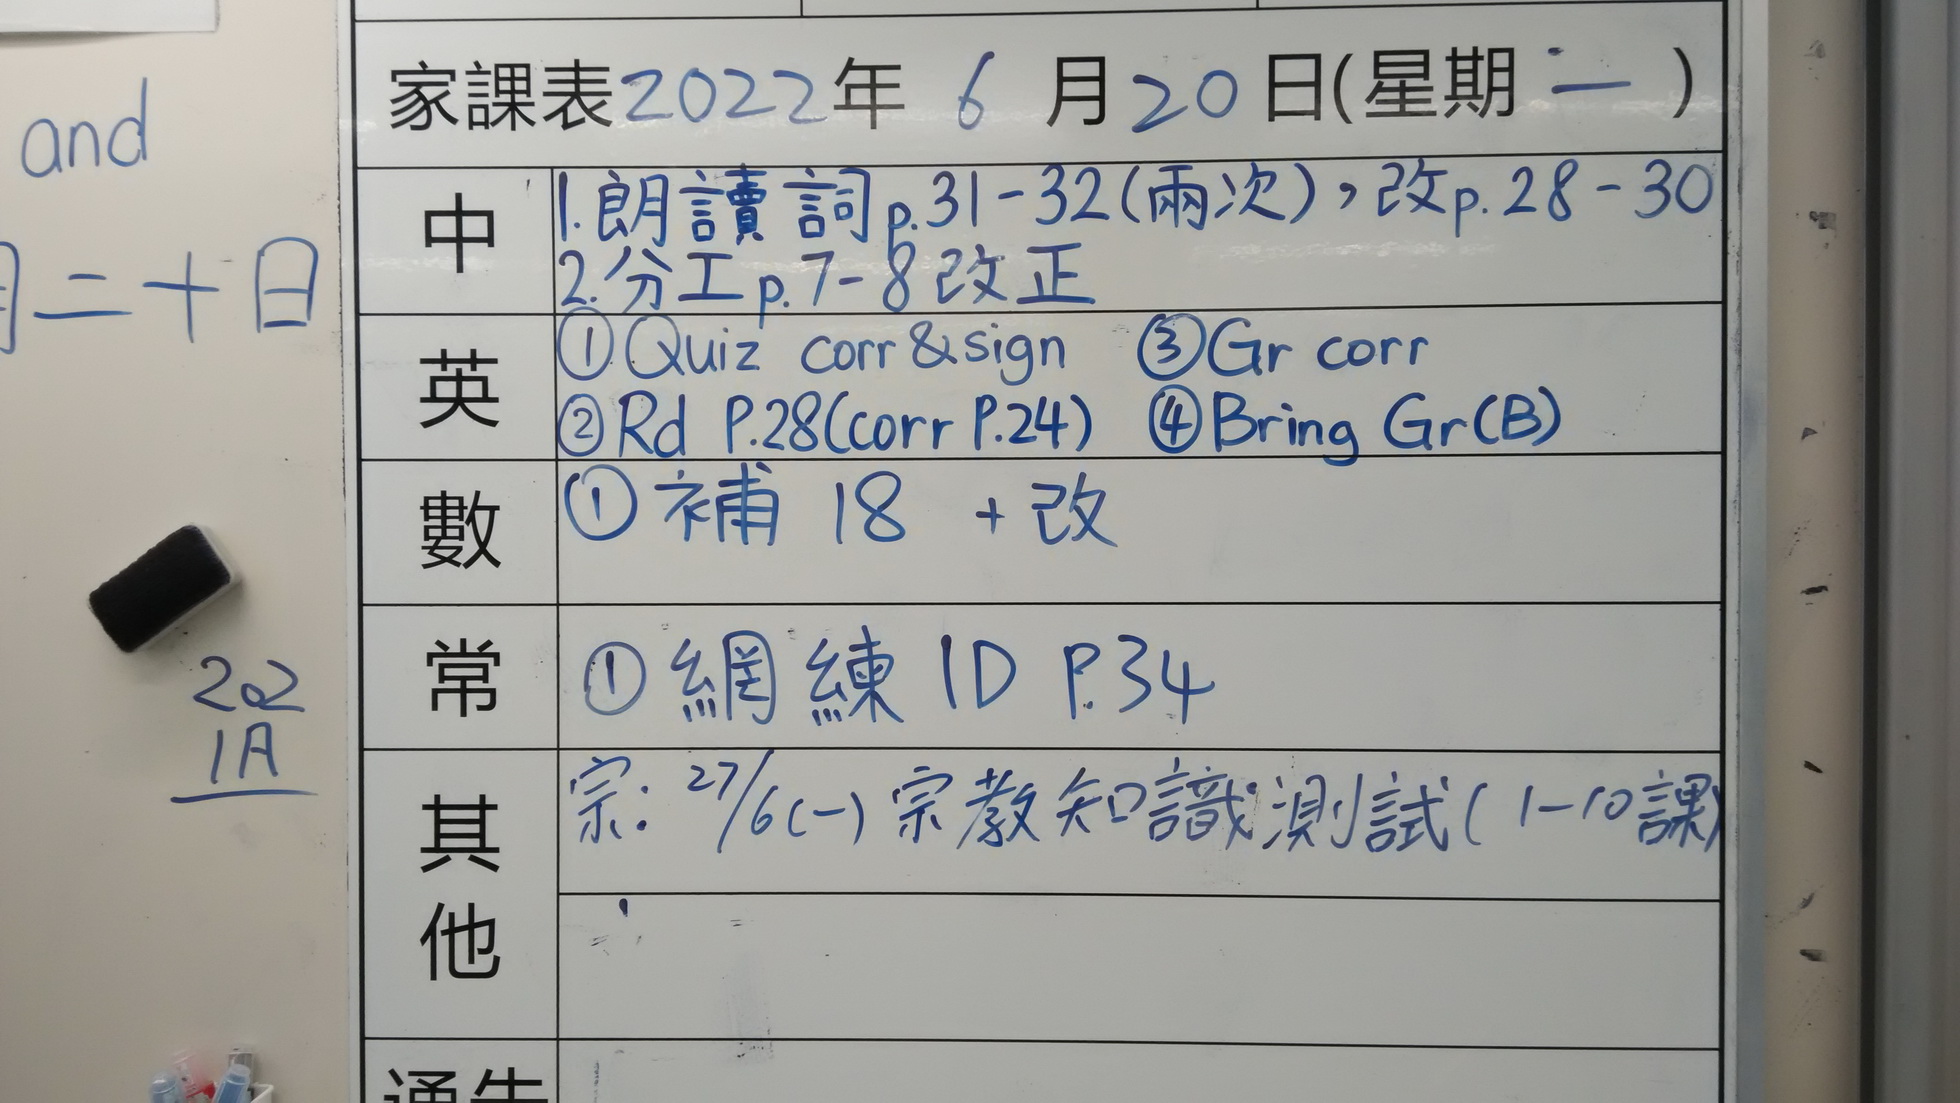 and
二十日
202
1A
家課表2022年 6 月20日(星期一)
中
1.朗讀詞p.31-32(兩次),改p.28-30
2.分工p.7-8改正
英
①Quiz corr&sign ③Gr corr
②Rd P.28(corr P.24) ④Bring Gr(B)
數
①補 18 +改
常
①網練 1D P.34
其他
宗: 27/6(一)宗教知識測試(1-10課)
通告